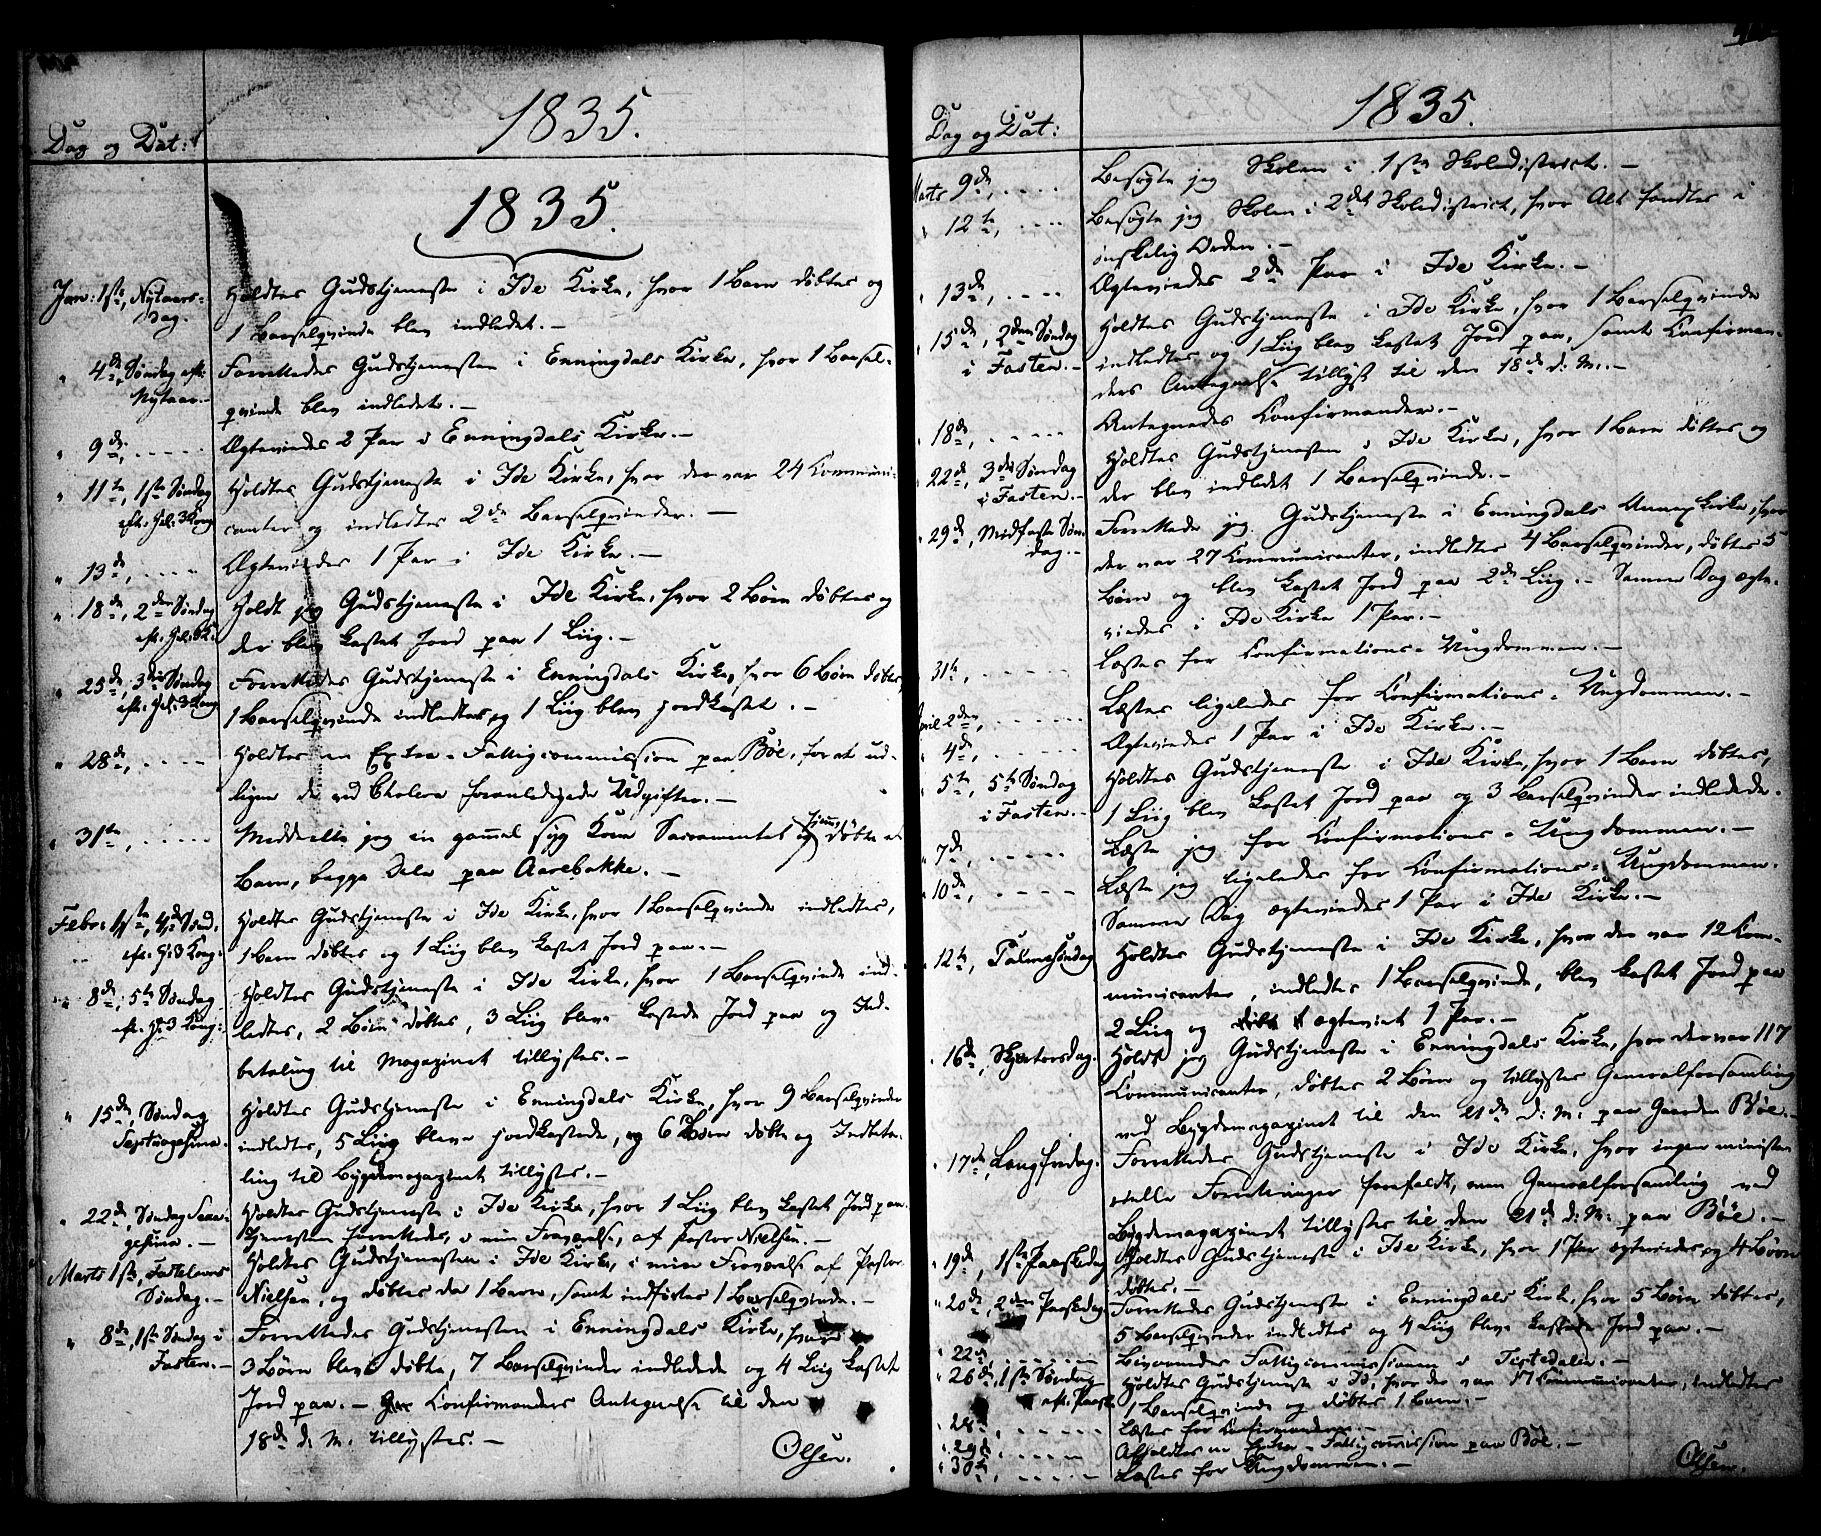 Dag og Dat:
1835.
1835.
Jan: 1ste, Nytaars-
Dag.
Holdtes Gudstjeneste i Ide Kirke, hvor 1 Barn døbtes og
1 Barselqvinde blev indledet. –
" 4de, Søndag eft:
Nytaar. –
Forrettedes Gudstjenesten i Enningdals Kirke, hvor 1 Barsel-
qvinde blev indledet. –
" 9de, . . . . .
Ægteviedes 2 Par i Enningdals Kirke. –
" 11te, 1ste Søndag
eft: Hel: 3 Kong
Holdtes Gudstjeneste i Ide Kirke, hvor der var 24 Communi-
canter og indledtes 2de Barselqvinder. –
" 13de, . . . .
Ægteviedes 1 Par i Ide Kirke. –
" 18de, 2den Søndag
eft: Hel: 3 K:
Holdt jeg Gudstjeneste i Ide Kirke, hvor 2 Børn døbtes og
der blev kastet Jord paa 1 Liig. –
" 25de, 3die Søndag
eft: Hel: 3 Kong
Forrettedes Gudstjeneste i Enningdals Kirke, hvor 6 Børn døbtes,
1 Barselqvinde indledtes og 1 Liig blev jordkastet. –
" 28de, . . . .
Holdtes en Extra-Fattigcommission paa Bøe, for at ud-
ligne de ved Cholera foranledigede Udgifter. –
" 31te, . . . . .
Meddeelte jeg en gammel syg Kone Sacramentet og hjemmedøbte et
Barn, begge Dele paa Aarebakke. –
Febr: 1ste, 4de Sønd.
eft: H: 3 Kong.
Holdtes Gudstjeneste i Ide Kirke, hvor 1 Barselqvinde indledtes,
1 Barn døbtes og 1 Liig blev kastet Jord paa. –
" 8de, 5te Søndag
eft: H: 3 Kong:
Holdtes Gudstjeneste i Ide Kirke, hvor 1 Barselqvinde ind-
ledtes, 2 Børn døbtes, 3 Liig bleve kastede Jord paa og Ind-
betaling til Magazinet tillystes. –
" 15de Søndag
Septuagesima.
Holdtes Gudstjeneste i Enningdals Kirke, hvor 9 Barselqvinder
indledtes, 5 Liig bleve jordkastede, og 6 Børn døbte og Indbeta-
ling til Bygdemagazinet tillystes. –
" 22de, Søndag Sexa-
gesima. –
Holdtes Gudstjeneste i Ide Kirke, hvor 1 Liig blev kastet Jord paa.
Tjenesten forrettedes, i min Fraværelse, af Pastor Nielsen. –
Marts 1ste, Fastelavns
Søndag. –
Holdtes Gudstjenesten i Ide Kirke, i min Fraværelse af Pastor
Nielsen, og døbtes der 1 Barn, samt indførtes 1 Barselqvinde. –
" 8de, 1ste Søndag i
Fasten. –
Forrettedes Gudstjenesten i Enningdals Kirke, hvor
3 Børn bleve døbte, 7 Barselqvinder indledede og 4 Liig kastet
Jord paa. – Confirmanders Antegnelse til den
18de d: M: tillystes. –
Olsen.
Dag og Dat:
1835.
Marts 9de, . . . .
Besøgte jeg Skolen i 1ste Skoledistrict. –
" 12te, . . . .
Besøgte jeg Skolen i 2det Skoledistrict, hvor Alt fandtes i
ønskelig Orden. –
" 13de, . . . .
Ægteviedes 2de Par i Ide Kirke. –
" 15de, 2den Søndag
i Fasten. –
Holdtes Gudstjeneste i Ide Kirke, hvor 1 Barselqvinde
indledtes og 1 Liig blev kastet Jord paa, samt Confirman-
ders Antegnelse tillyst til den 18de d: M: –
" 18de, . . . . .
Antegnedes Confirmander. –
" 22de, 3die Søndag
i Fasten. –
Holdtes Gudstjenesten i Ide Kirke, hvor 1 Barn døbtes og
der blev indledet 1 Barselqvinde. –
" 29de, Midfaste Søn-
dag. –
Forrettede jeg Gudstjeneste i Enningdals Annexkirke, hvor
der var 27 Communicanter, indledtes 4 Barselqvinder, døbtes 5
Børn og blev kastet Jord paa 2de Liig. – Samme Dag ægte-
viedes i Ide Kirke 1 Par. –
31te, . . . . .
Læstes for Confirmations-Ungdommen. –
April 2den, . . . . .
Læstes ligeledes for Confirmations-Ungdommen. –
" 4de, . . . . .
Ægteviedes 1 Par i Ide Kirke. –
" 5te, 5te Søndag
i Fasten. –
Holdtes Gudstjeneste i Ide Kirke, hvor 1 Barn døbtes,
1 Liig blev kastet Jord paa og 3 Barselqvinder indledede.
" 7de, . . . . .
Læste jeg for Confirmations-Ungdommen. –
" 10de, . . . . .
Læste jeg ligeledes for Confirmations-Ungdommen.
Samme Dag ægteviedes 1 Par i Ide Kirke. –
" 12te, Palmesøndag
Holdtes Gudstjeneste i Ide Kirke, hvor der var 12 Com-
municanter, indledtes 1 Barselqvinde, blev kastet Jord paa
2 Liig og ægteviet 1 Par. –
" 16de, Skjærtorsdag.
Holdt jeg Gudstjeneste i Enningdals Kirke, hvor der var 117
Communicanter, døbtes 2 Børn og tillystes Generalforsamling
ved Bygdemagazinet til den 21de d: M: paa Gaarden Bøe. –
" 17de, Langfredag.
Forrettedes Gudstjeneste i Ide Kirke, hvor ingen ministe-
rielle Forretninger forefaldt, men Generalforsamling ved
Bygdemagazinet tillystes til den 21de d: M: paa Bøe. –
" 19de, 1ste Paaskedag
Holdtes Gudstjeneste i Ide Kirke, hvor 1 Par ægteviedes og 4 Børn
døbtes. –
" 20de, 2den Paaskedag
Forrettedes Gudstjeneste i Enningdals Kirke, hvor 5 Børn døbtes,
5 Barselqvinder indledtes og 4 Liig bleve kastede Jord paa. –
" 22de, . . . . .
Bivaanedes Fattigcommissionen i Tistedalen. –
" 26de, 1ste Søndag
eft: Paaske
Holdtes Gudstjeneste i Id, hvor der var 17 Communicanter, indledtes
1 Barselqvinde og døbtes 1 Barn. –
" 28de, . . . . .
Læstes for Confirmanderne. –
" 29de, . . . . .
Afholdtes en Extra-Fattigcommission paa Bøe. –
" 30te, . . . . .
Læstes for Ungdommen. –
Olsen.